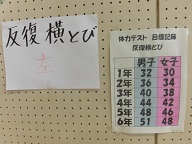 反復横とび
体力テスト 目標記録
反復横とび
男子 女子
1年 32 30
2年 36 34
3年 40 38
4年 44 42
5年 48 46
6年 51 48